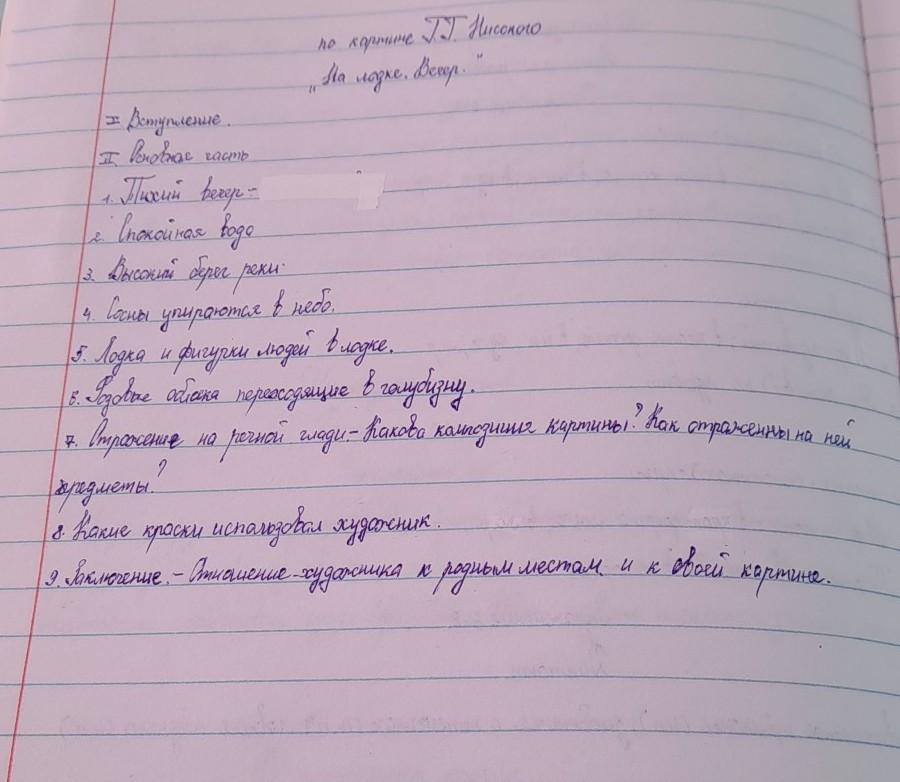 по картине Г.Г. Нисского
„На лодке. Вечер."
I Вступление.
II. Основная часть
1. Тихий вечер-
2. Спокойная вода
3. Высокий берег реки.
4. Сосны упираются в небо.
5. Лодка и фигурки людей в лодке.
6. Розовые облака переходящие в голубизну.
7. Отражение на речной глади.- Какова композиция картины? Как отраженны на ней
предметы?
8. Какие краски использовал художник.
9. Заключение. - Отношение художника к родным местам и к своей картине.